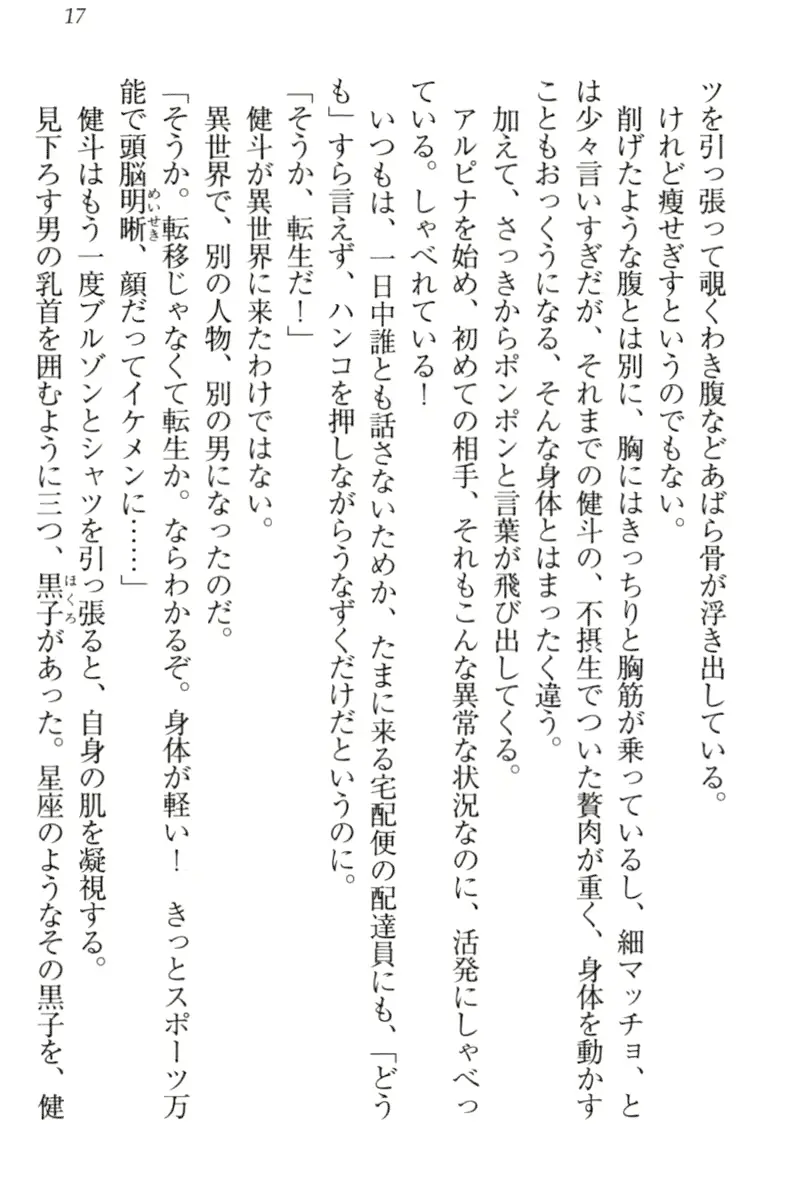 17
ツを引っ張って覗くわき腹などあばら骨が浮き出している。
けれど痩せぎすというのでもない。
削げたような腹とは別に、胸にはきっちりと胸筋が乗っているし、細マッチョ、と
は少々言いすぎだが、それまでの健斗の、不摂生でついた贅肉が重く、身体を動かす
こともおっくうになる、そんな身体とはまったく違う。
加えて、さっきからポンポンと言葉が飛び出してくる。
アルピナを始め、初めての相手、それもこんな異常な状況なのに、活発にしゃべっ
ている。しゃべれている！
いつもは、一日中誰とも話さないためか、たまに来る宅配便の配達員にも、「どう
も」すら言えず、ハンコを押しながらうなずくだけだというのに。
「そうか、転生だ！」
健斗が異世界に来たわけではない。
異世界で、別の人物、別の男になったのだ。
「そうか。転移じゃなくて転生か。ならわかるぞ。身体が軽い！　きっとスポーツ万
能で頭脳明晰、顔だってイケメンに……」
めいせき
健斗はもう一度ブルゾンとシャツを引っ張ると、自身の肌を凝視する。
見下ろす男の乳首を囲むように三つ、黒子があった。星座のようなその黒子を、健
ほくろ